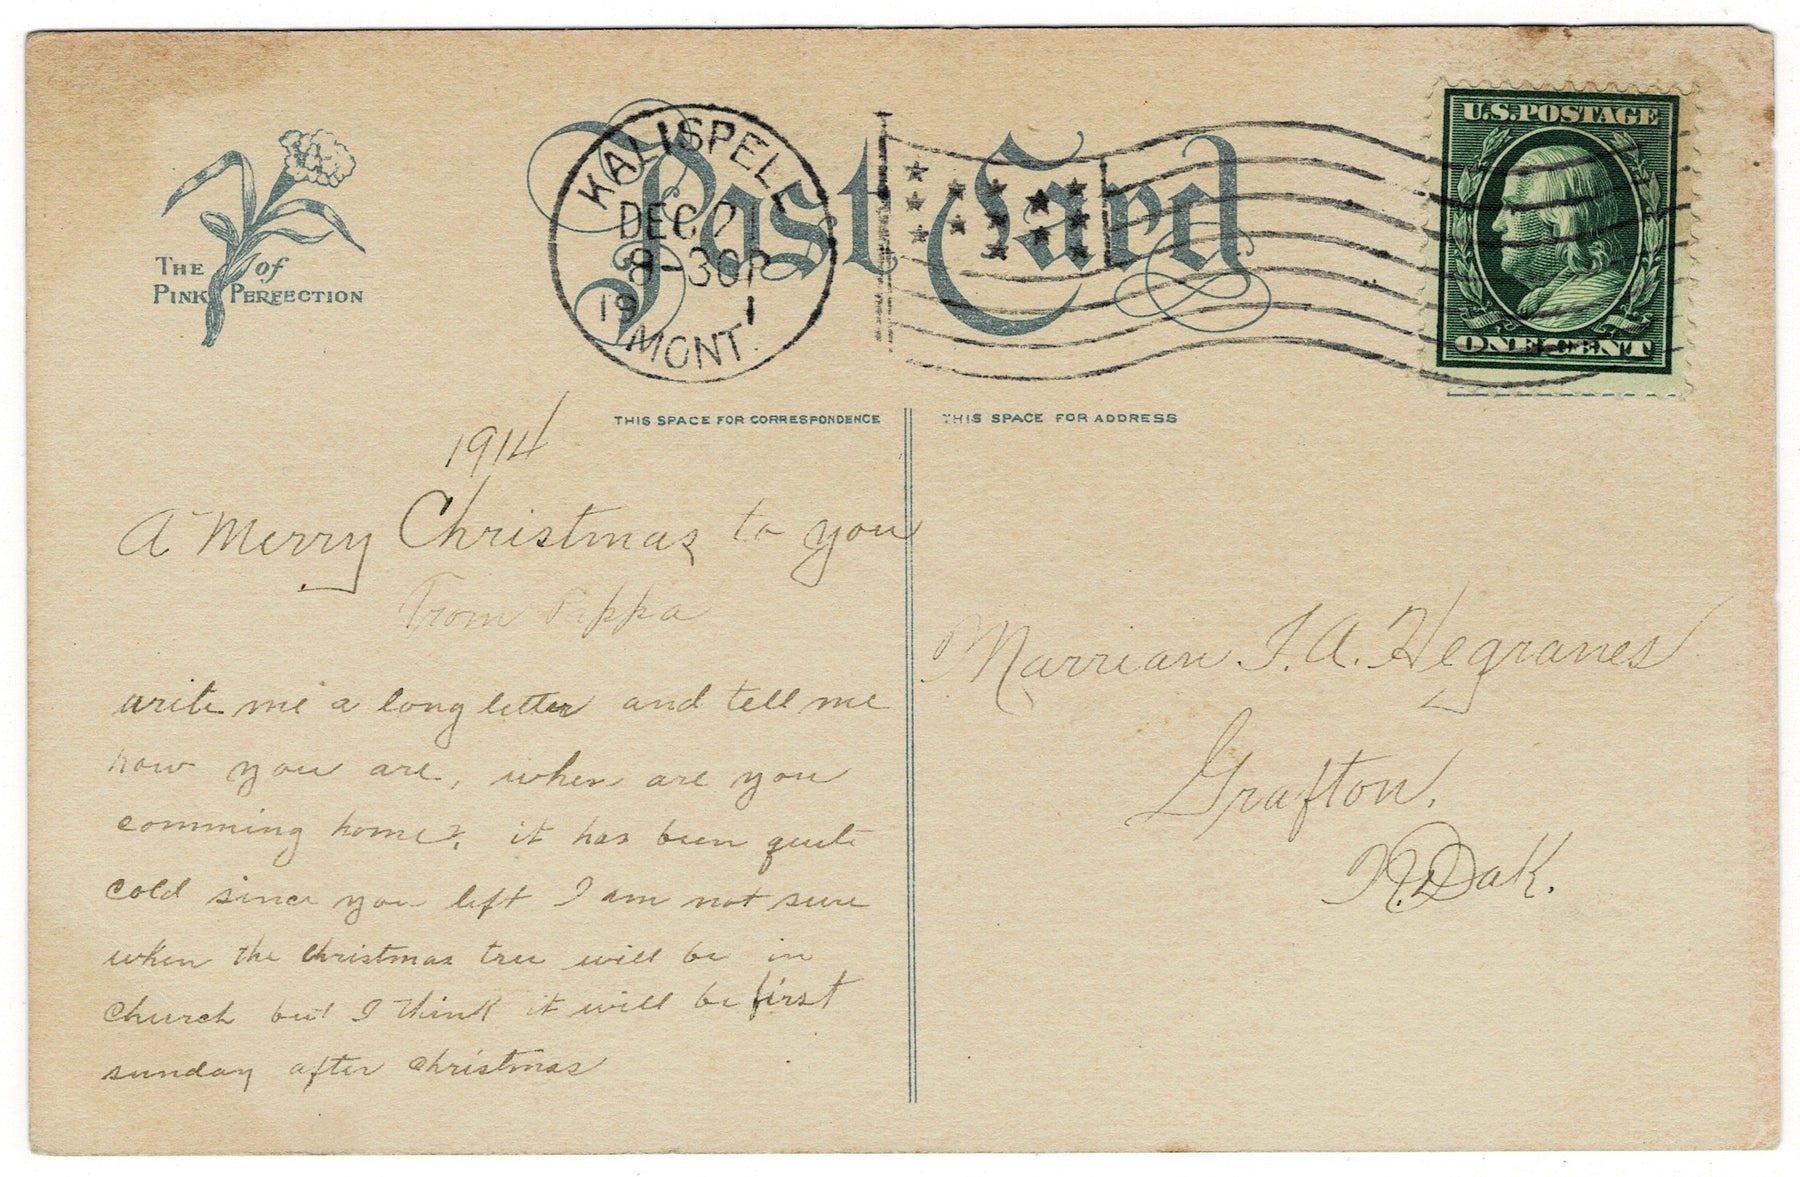 THE PINK of PERFECTION
Post Card
KALISPELL
DEC 21
8-30P
19 1
MONT.
U.S. POSTAGE
ONE CENT
THIS SPACE FOR CORRESPONDENCE
THIS SPACE FOR ADDRESS
1914
A Merry Christmas to you
From Pappa
write me a long letter and tell me
how you are, when are you
comming home? it has been quite
cold since you left I am not sure
when the christmas tree will be in
church but I think it will be first
sunday after christmas
Marrian I. A. Hegranes
Grafton.
N. Dak.